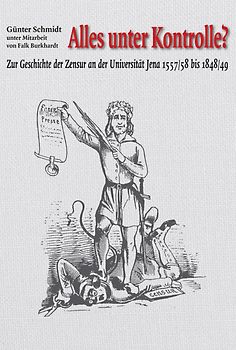 Günter Schmidt
unter Mitarbeit
von Falk Burkhardt
Alles unter Kontrolle?
Zur Geschichte der Zensur an der Universität Jena 1557/58 bis 1848/49
Presse